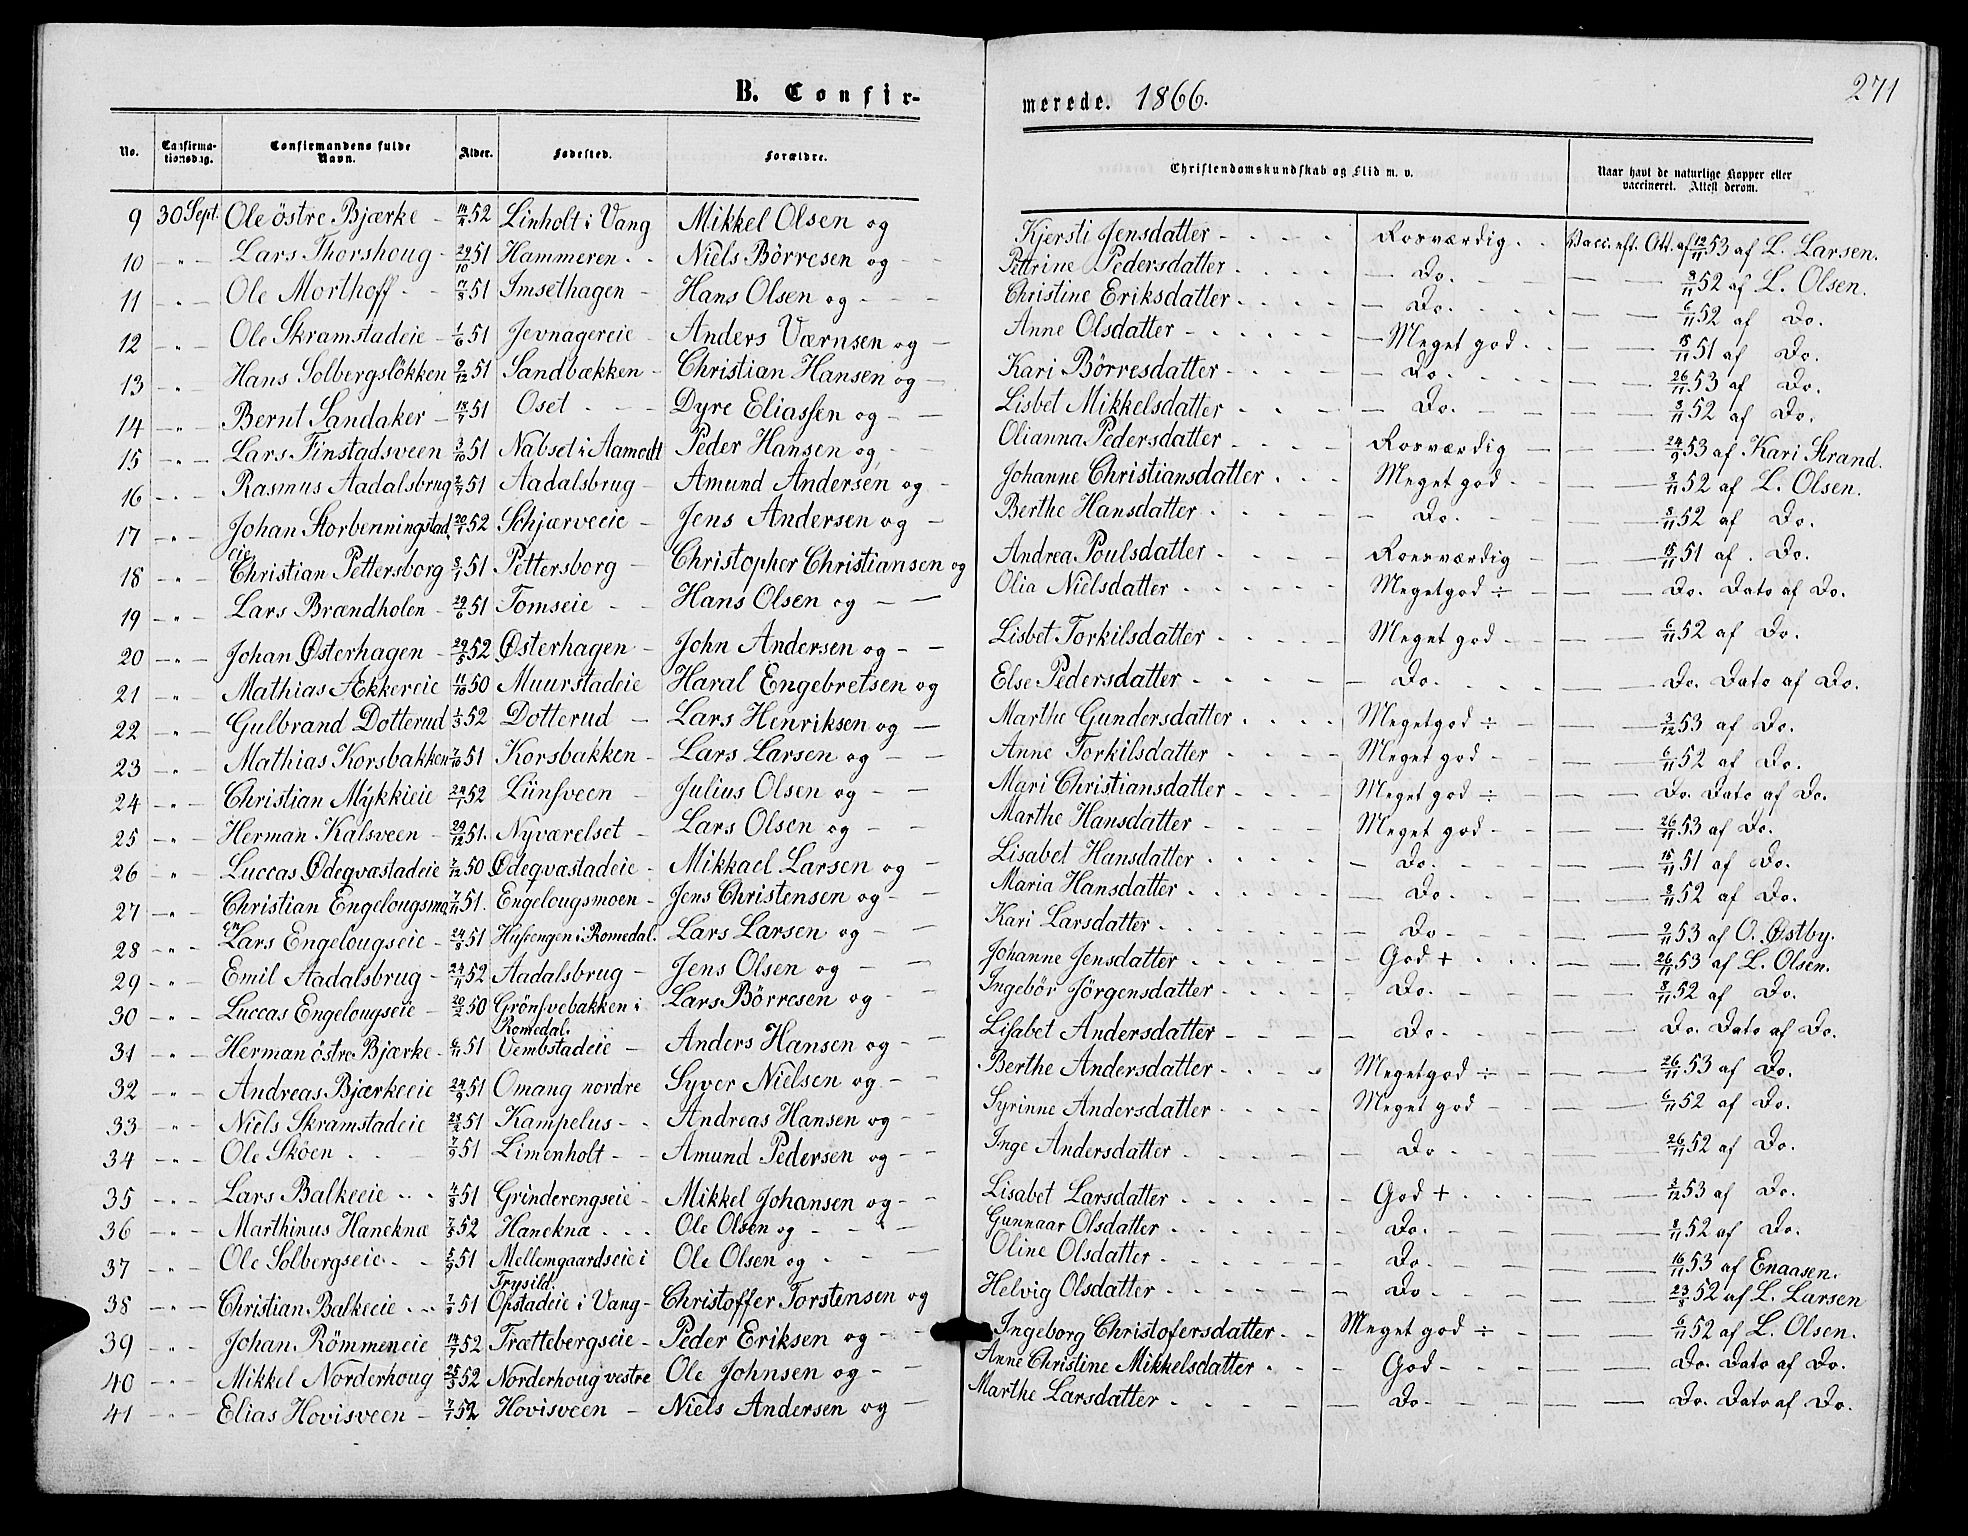 B. Confir-
merede. 1866.
271
No. Confirmationsdag. Confirmandens fulde Navn. Alder. Fødested. Forældre. Christendomskundskab og Flid m. v. Naar havt de naturlige Kopper eller vaccineret. Attest derom.
9 30 Sept. Ole östre Bjærke - 14/4 52 Linholt i Vang Mikkel Olsen og Kjersti Jensdatter - Rosværdig - Vacc. eft. Att. af 12/11 53 af L. Larsen.
10 - " - Lars Thorshoug - 29/10 51 Hammeren - Niels Börresen og - Pettrine Pedersdatter - Do. - 8/11 52 af L. Olsen.
11 - " - Ole Morthoff - 17/8 51 Imsethagen - Hans Olsen og - Christine Eriksdatter - Do. - 6/11 52 af Do.
12 - " - Ole Skramstadeie - 1/6 51 Jevnagereie - Anders Værnsen og - Anne Olsdatter - Meget god - 18/11 51 af Do.
13 - " - Hans Solbergslökken 9/12 51 Sandbækken - Christian Hansen og - Kari Börresdatter - Do. - 26/11 53 af Do.
14 - " - Bernt Sandaker - 18/7 51 Oset - Dyre Eliassen og - Lisbet Mikkelsdatter - Do. - 8/11 52 af Do.
15 - " - Lars Finstadsveen 3/10 51 Nabset i Aamodt Peder Hansen og - Olianna Pedersdatter - Rosværdig - 24/9 53 af Kari Strand.
16 - " - Rasmus Aadalsbrug 2/7 51 Aadalsbrug - Amund Andersen og - Johanne Christiansdatter - Meget god - 8/11 52 af L. Olsen.
17 - " - Johan Storbenningstad eie 20/1 52 Schjærveeie - Jens Andersen og - Berthe Hansdatter - Do. - 8/11 52 af Do.
18 - " - Christian Pettersborg 8/1 51 Pettersborg - Christopher Christiansen og Andrea Poulsdatter - Roesværdig - 15/11 51 af Do.
19 - " - Lars Brændholen - 29/6 51 Tomseie - Hans Olsen og - Olia Nielsdatter - Megetgod ÷ - Do. Dato af Do.
20 - " - Johan Østerhagen - 29/5 52 Østerhagen - John Andersen og - Lisbet Torkilsdatter - Meget god - 6/11 52 af Do.
21 - " - Mathias Ækkereie 11/10 50 Muurstadeie Haral Engebretsen og Else Pedersdatter - Do. - Do. Dato af Do.
22 - " - Gulbrand Dotterud 1/3 52 Dotterud - Lars Henriksen og - Marthe Gundersdatter - Megetgod ÷ - 3/12 53 af Do.
23 - " - Mathias Korsbakken 7/10 51 Korsbakken - Lars Larsen og - Anne Torkilsdatter - Meget god - 6/11 52 af Do.
24 - " - Christian Mykkieie 24/7 52 Lünsveen - Julius Olsen og - Mari Christiansdatter - Meget god ÷ - Do. Dato af Do.
25 - " - Herman Kalsveen - 29/12 51. Nyværelset - Lars Olsen og - Marthe Hansdatter - Meget god - 26/11 53 af Do.
26 - " - Luccas Ødegvæstadeie 7/12 50 Ødegvæstadeie - Mikkael Larsen og - Lisabet Hansdatter - Do. - 15/11 51 af Do.
27 - " - Christian Engelougsmoen 7/11 51. Engelougsmoen - Jens Christensen og - Maria Hansdatter - Do. - 8/11 52 af Do.
28 - " - Lars Engelougseie - 24/8 51 Husrengen i Romedal. Lars Larsen og - Kari Larsdatter - Do - 9/11 53 af O. Østby.
29 - " - Emil Aadalsbrug - 24/11 52 Aadalsbrug - Jens Olsen og - Johanne Jensdatter - God + - 26/11 53 af L. Olsen.
30 - " - Luccas Engelougseie - 20/2 50 Grönsvebakken i Romedal. Lars Börresen og - Ingebör Jörgensdatter - Do. - 8/11 52 af Do.
31 - " - Herman östre Bjærke - 6/11 51 Vembstadeie - Anders Hansen og - Lisabet Andersdatter - Do - Do. Dato af Do.
32 - " - Andreas Bjærkeeie 24/9 51 Omang nordre Syver Nielsen og - Berthe Andersdatter - Megetgod ÷ - 26/11 53 af Do.
33 - " - Niels Skramstadeie 23/2 51 Kampelus - Andreas Hansen og - Syrinne Andersdatter - Meget god - 6/11 52 af Do.
34 - " - Ole Skoen - 7/9 51 Limenholt - Amund Pedersen og - Inge Andersdatter - Do - 26/11 52 af Do.
35 - " - Lars Balkeeie - 4/8 51 Grinderengseie - Mikkel Johansen og - Lisabet Larsdatter - God + - 3/12 53 af Do.
36 - " - Marthinus Haneknæ 7/5 52 Haneknæ - Ole Olsen og - Gunnaar Olsdatter - Do. - 8/11 52 af Do.
37 - " - Ole Solbergseie - 5/9 51 Mellemgaardseie i Trysild. Ole Olsen og - Oline Olsdatter - Do - 16/11 53 af Enaasen.
38 - " - Christian Balkeeie - 7/8 51 Opstadeie i Vang - Christoffer Torstensen og Helvig Olsdatter - Do - 23/8 52 af L. Larsen
39 - " - Johan Römmeneie 14/7 52 Trættebergseie - Peder Eriksen og - Ingeborg Christofersdatter - Meget god ÷ - 6/11 52 af L. Olsen.
40 - " - Mikkel Norderhoug 25/3 52 Norderhoug vestre Ole Johnsen og - Anne Christine Mikkelsdatter - God - Do. Dato af Do.
41 - " - Elias Hovisveen - 7/1 52 Hovisveen - Niels Andersen og - Marthe Larsdatter - Do - Do. Dato af Do.